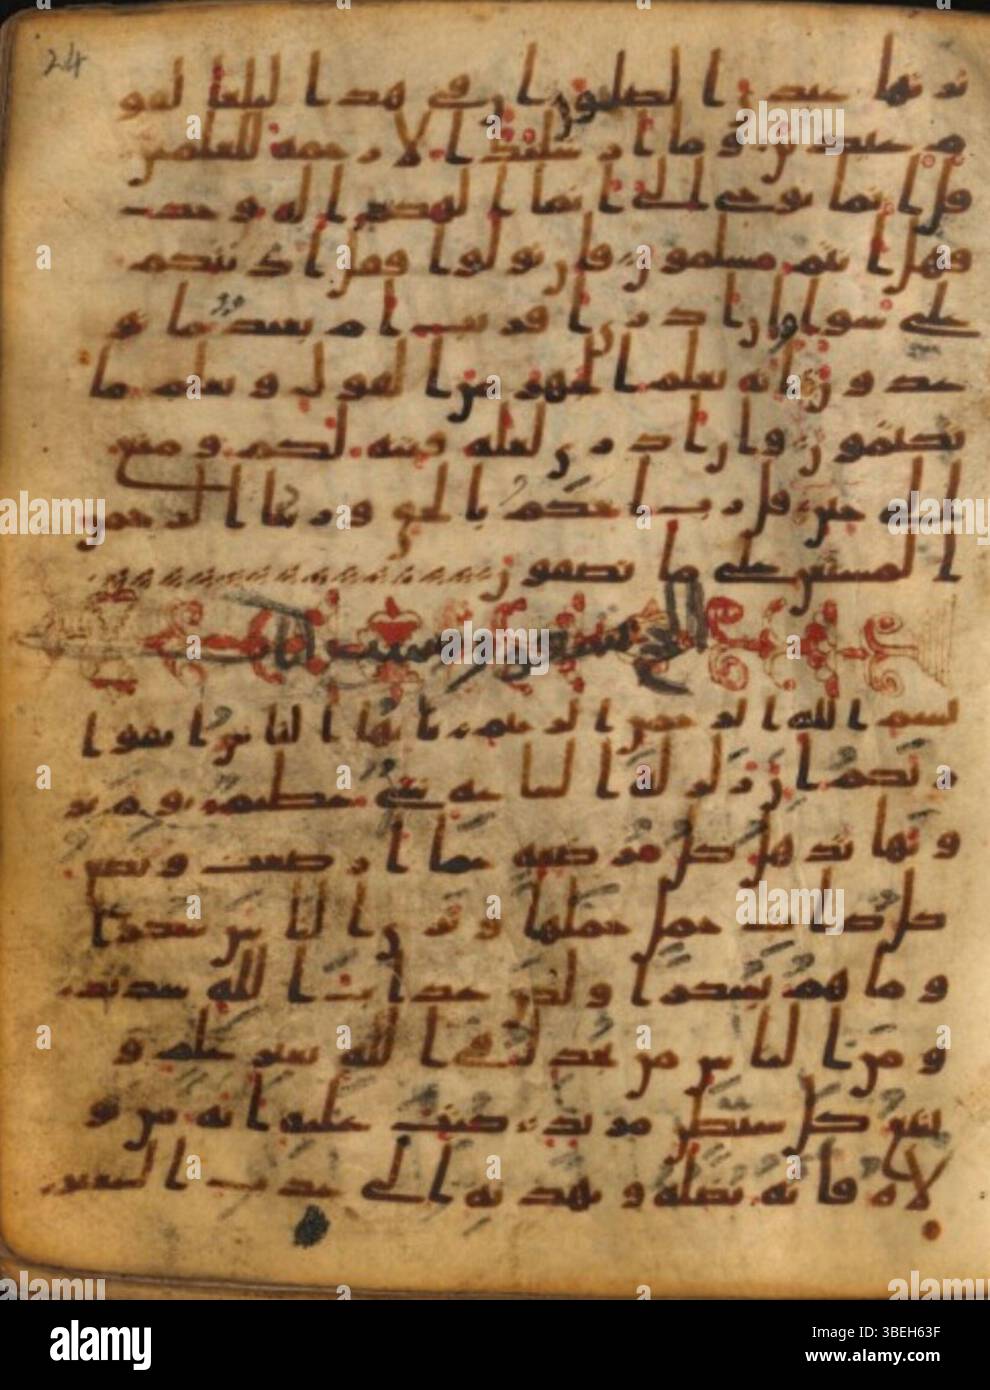 24
ىرثها عبدى الصلحون ان فى هذا لبلغا لقو
م عبدين وما ارسلنك الا رحمة للعلمين
قل انما يوحى الى انما الهكم اله وحد
فهل انتم مسلمون فان تولوا فقل اذنتكم
على سوا وان ادرى اقريب ام بعيد ما تو
عدون انه يعلم الجهر من القول ويعلم ما
تكتمون وان ادرى لعله فتنة لكم ومتع
الى حين قل رب احكم بالحق وربنا الرحمن
المستعن على ما تصفون
الحج سبعون وست ايات
بسم الله الرحمن الرحيم يايها الناس اتقوا
ربكم ان زلزلة الساعة شى عظيم يوم تر
ونها تذهل كل مرضعة عما ارضعت وتضع
كل ذات حمل حملها وترى الناس سكرى
وما هم بسكرى ولكن عذاب الله شديد
ومن الناس من يجدل فى الله بغير علم و
يتبع كل شيطن مريد كتب عليه انه من تو
لاه فانه يضله ويهديه الى عذاب السعير
alamy
Image ID: 3BEH63F
www.alamy.com